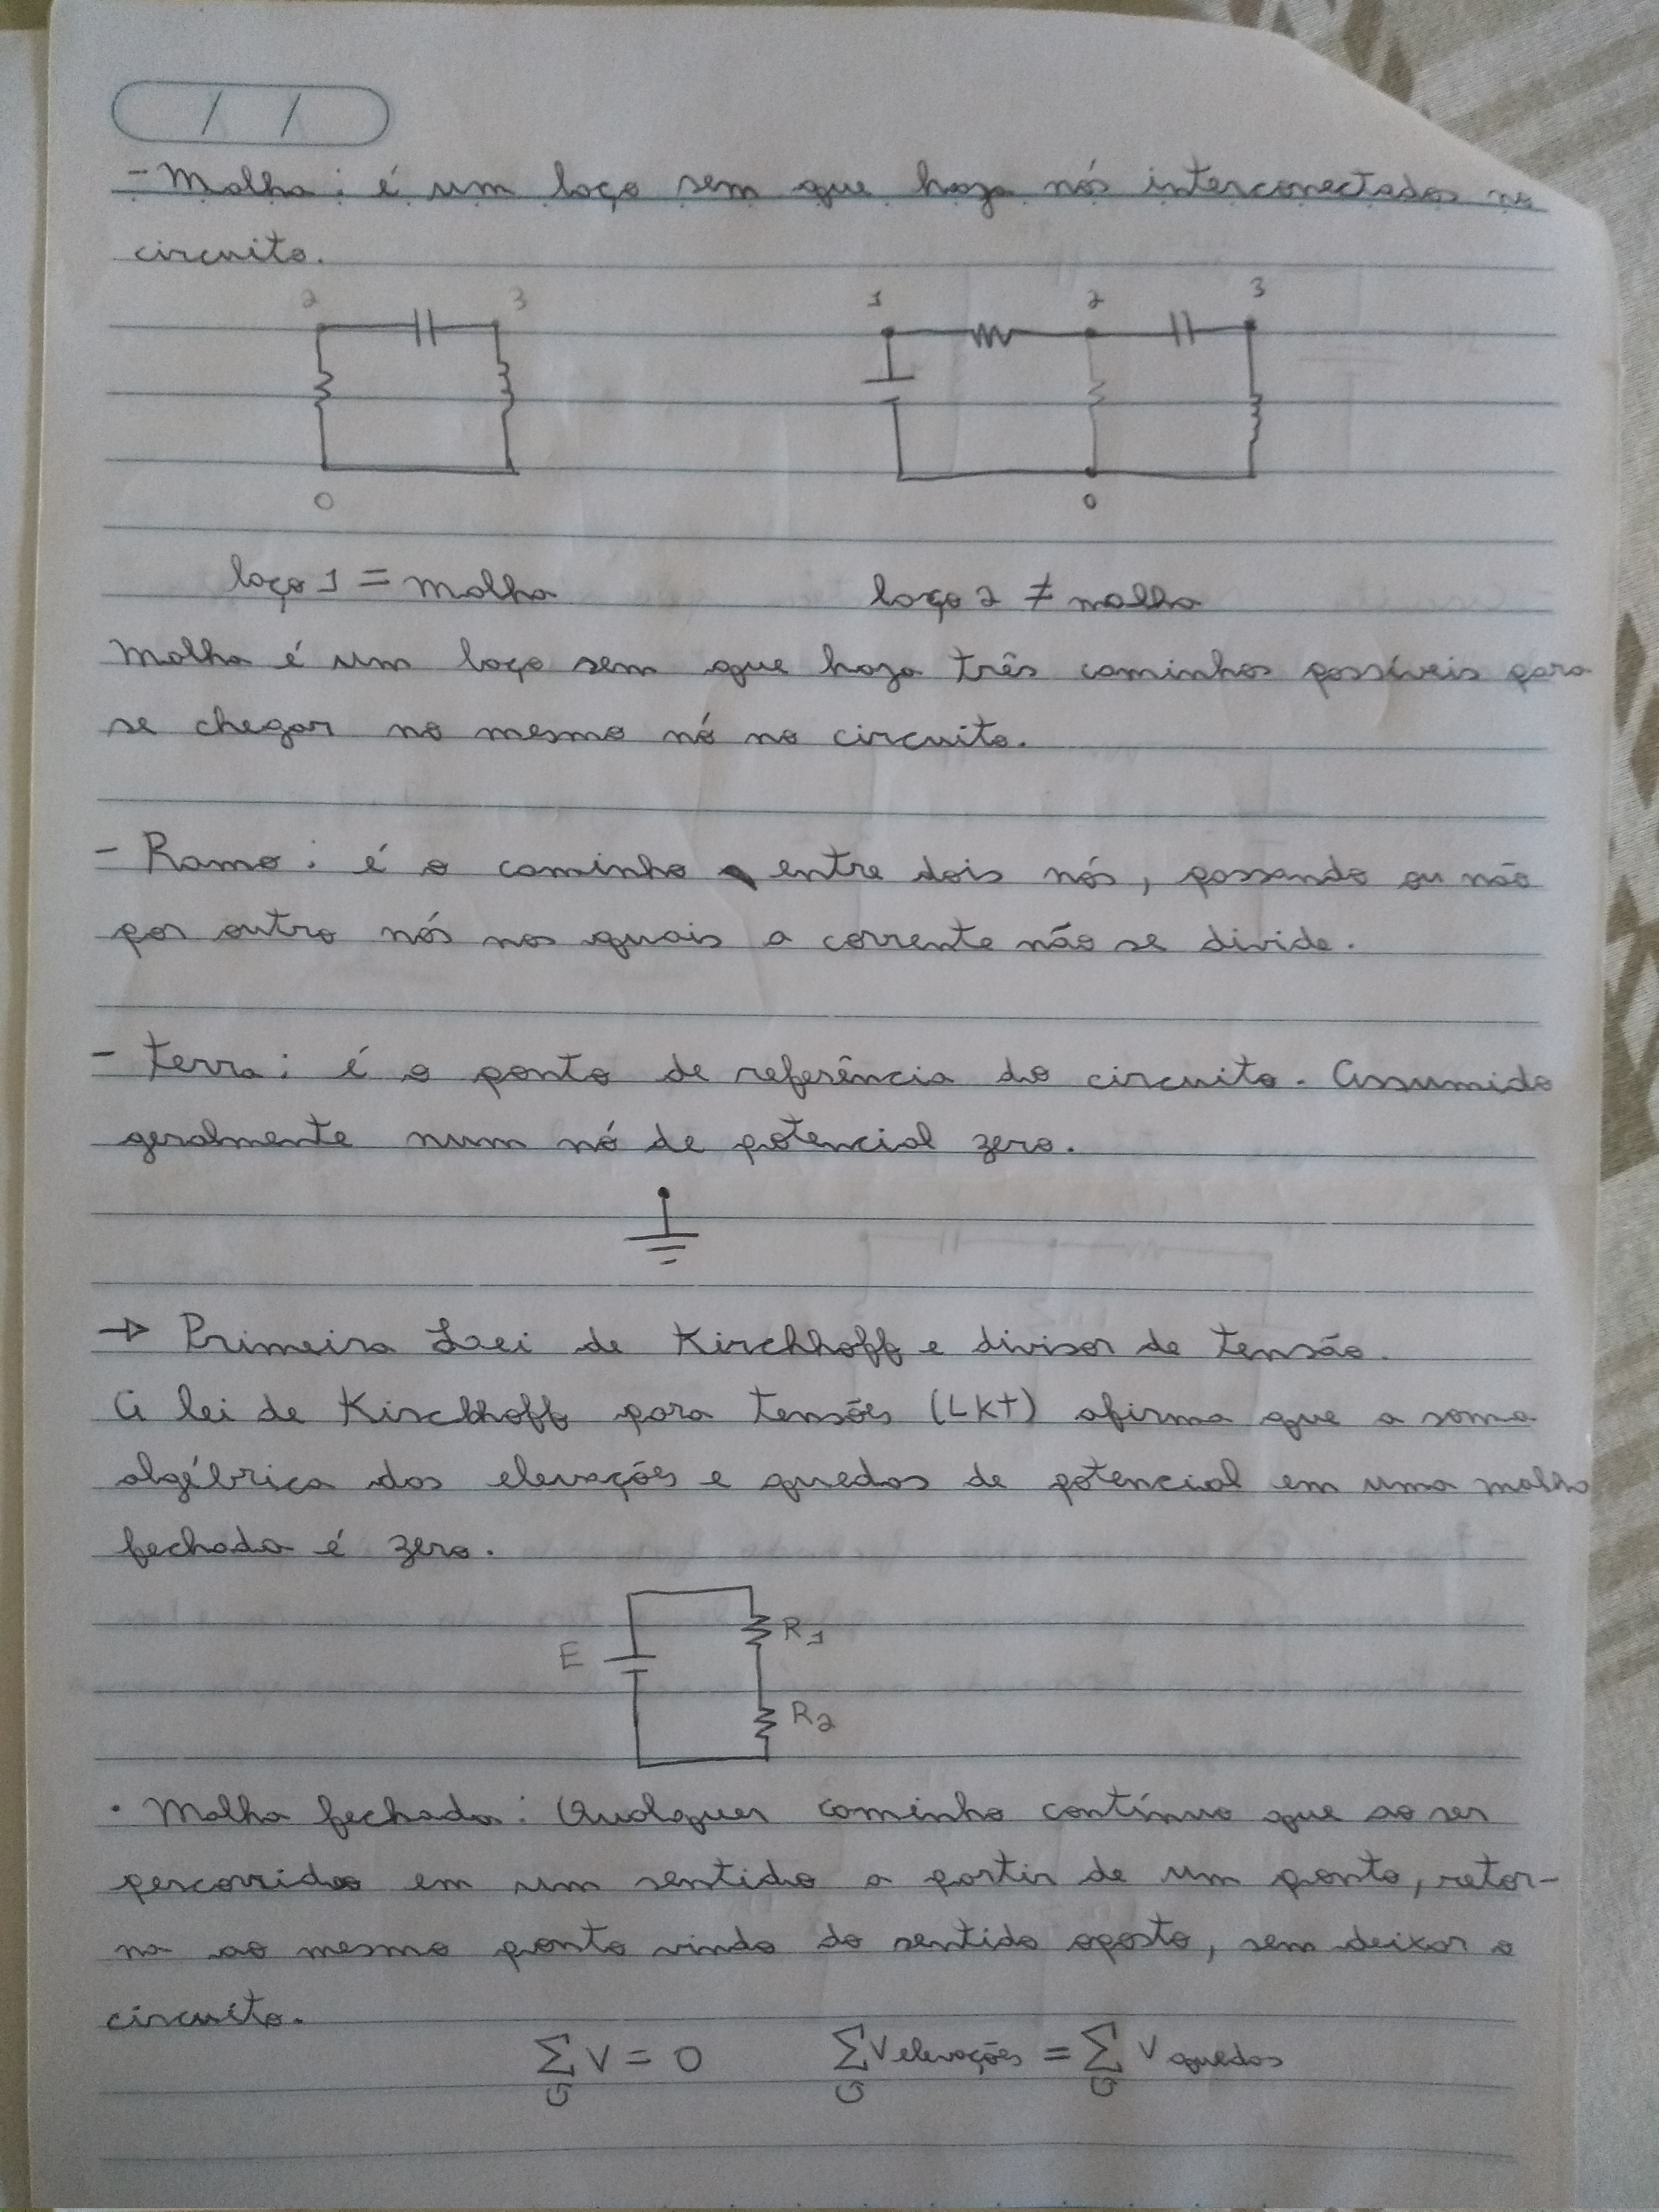 / /
- Malha: é um laço sem que haja nós interconectados no
circuito.
2 3 1 2 3
0 0
laço 1 = malha laço 2 ≠ malha
Malha é um laço sem que haja três caminhos possíveis para
se chegar no mesmo nó no circuito.
- Ramo: é o caminho entre dois nós, passando ou não
por outro nós nos quais a corrente não se divide.
- Terra: é o ponto de referência do circuito. Assumido
geralmente num nó de potencial zero.
→ Primeira Lei de Kirchhoff e divisor de tensão.
A lei de Kirchhoff para tensões (LKT) afirma que a soma
algébrica das elevações e quedas de potencial em uma malha
fechada é zero.
E R1
R2
• Malha fechada: Qualquer caminho contínuo que ao ser
percorrido em um sentido a partir de um ponto, retor-
na ao mesmo ponto vindo do sentido oposto, sem deixar o
circuito.
∑↺ V = 0 ∑↺ V elevações = ∑↺ V quedas